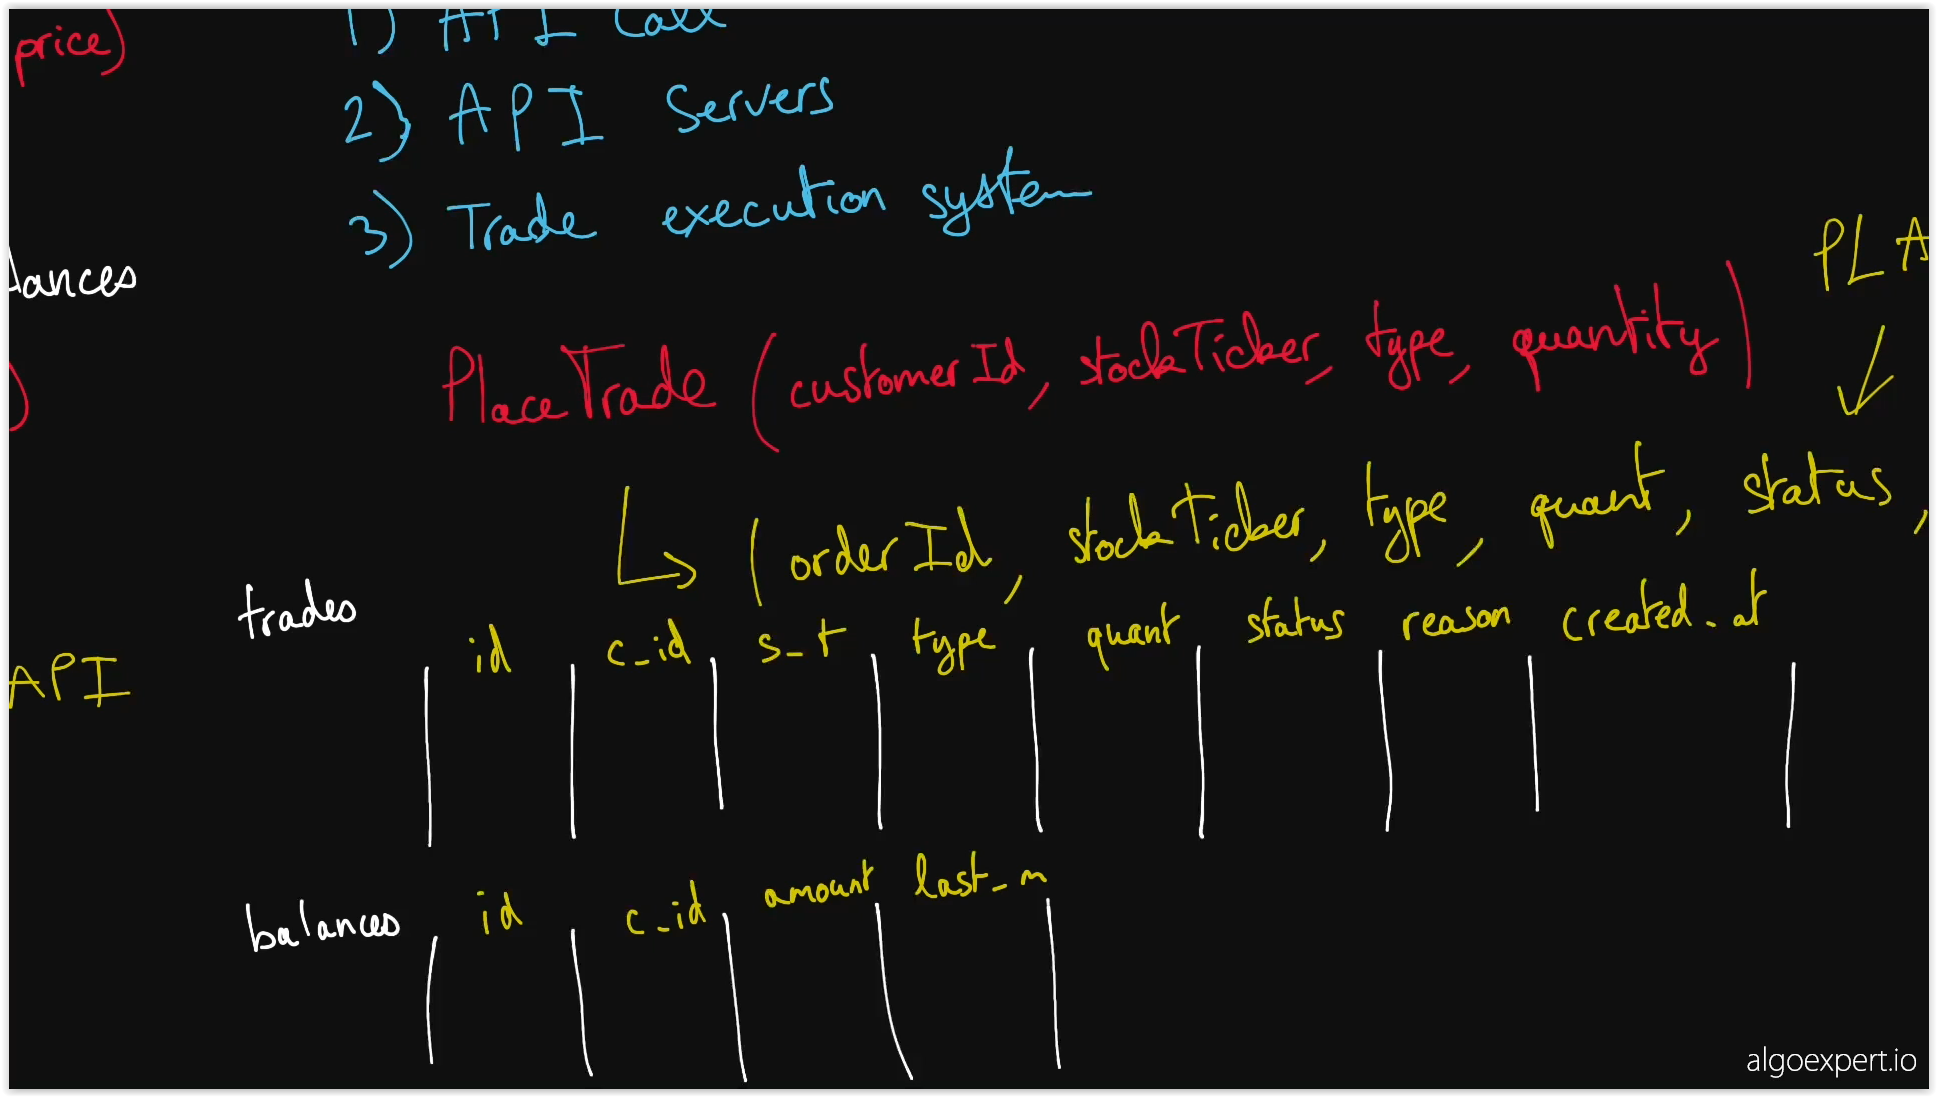 price)
1) API Call
2) API Servers
3) Trade execution system
lances
PLA
PlaceTrade (customerId, stockTicker, type, quantity)
)
(orderId, stockTicker, type, quant, status,
trades
id c_id s_t type quant status reason created_at
API
balances
id c_id amount last_m
algoexpert.io